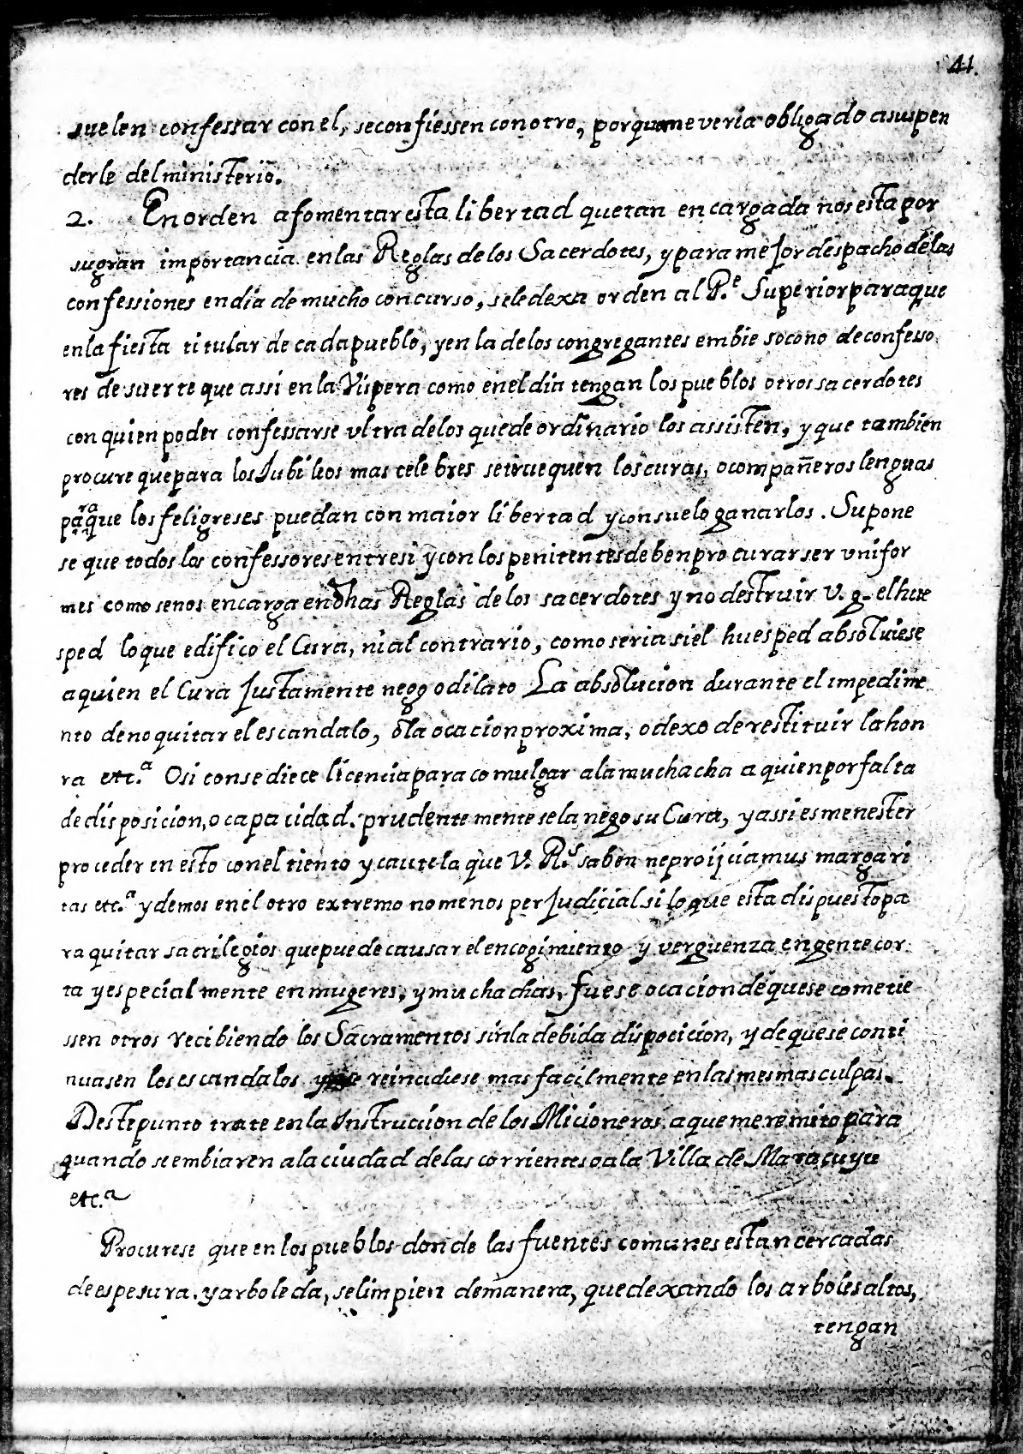 41.
suelen confessar con el, se confiessen con otro, porque me veria obligado a suspen
derle del ministerio.
2. En orden a fomentar esta libertad que tan encargada nos esta por
su gran importancia en las Reglas de los Sacerdotes, y para mejor despacho de las
confessiones en dia de mucho concurso, se le dexa orden al P.e Superior para que
en la fiesta titular de cada pueblo, y en la de los congregantes embie socono de confesso
res de suerte que assi en la Vispera como en el dia tengan los pueblos otros sacerdotes
con quien poder confessarse ultra de los que de ordinario los assisten, y que tambien
procure que para los Jubileos mas celebres se truequen los curas, o compañeros lenguas
para que los feligreses puedan con maior libertad y consuelo ganarlos. Supone
se que todos los confessores entre si y con los penitentes deben procurar ser unifor
mes como se nos encarga en dhas Reglas de los sacerdotes y no destruir V. g. el hue
sped lo que edifico el Cura, ni al contrario, como seria si el huesped absolviese
a quien el Cura Justamente nego o dilato La absolucion durante el impedime
nto de no quitar el escandalo, o la ocacion proxima, o dexo de restituir la hon
ra etc.a O si consediece licencia para comulgar a la muchacha a quien por falta
de disposicion, o capacidad prudentemente se la nego su Cura, y assi es menester
proceder en esto con el tiento y cautela que V. R.s saben ne proijciamus margari
tas etc.a y demos en el otro extremo no menos perJudicial si lo que esta dispuesto pa
ra quitar sacrilegios que puede causar el encogimiento y verguenza en gente cor
ta y especialmente en mugeres, y muchachas, fuese ocacion de que se cometie
ssen otros recibiendo los Sacramentos sin la debida disposicion, y de que se conti
nuasen los escandalos y se reincidiese mas facilmente en las mesmas culpas.
Deste punto trate en la Instrucion de los Micioneros a que me remito para
quando se embiaren a la ciudad de las corrientes o a la Villa de Maracuyu
etc.a
Procurese que en los pueblos donde las fuentes comunes estan cercadas
de espesura, y arboleda, se limpien de manera, que dexando los arboles altos,
tengan